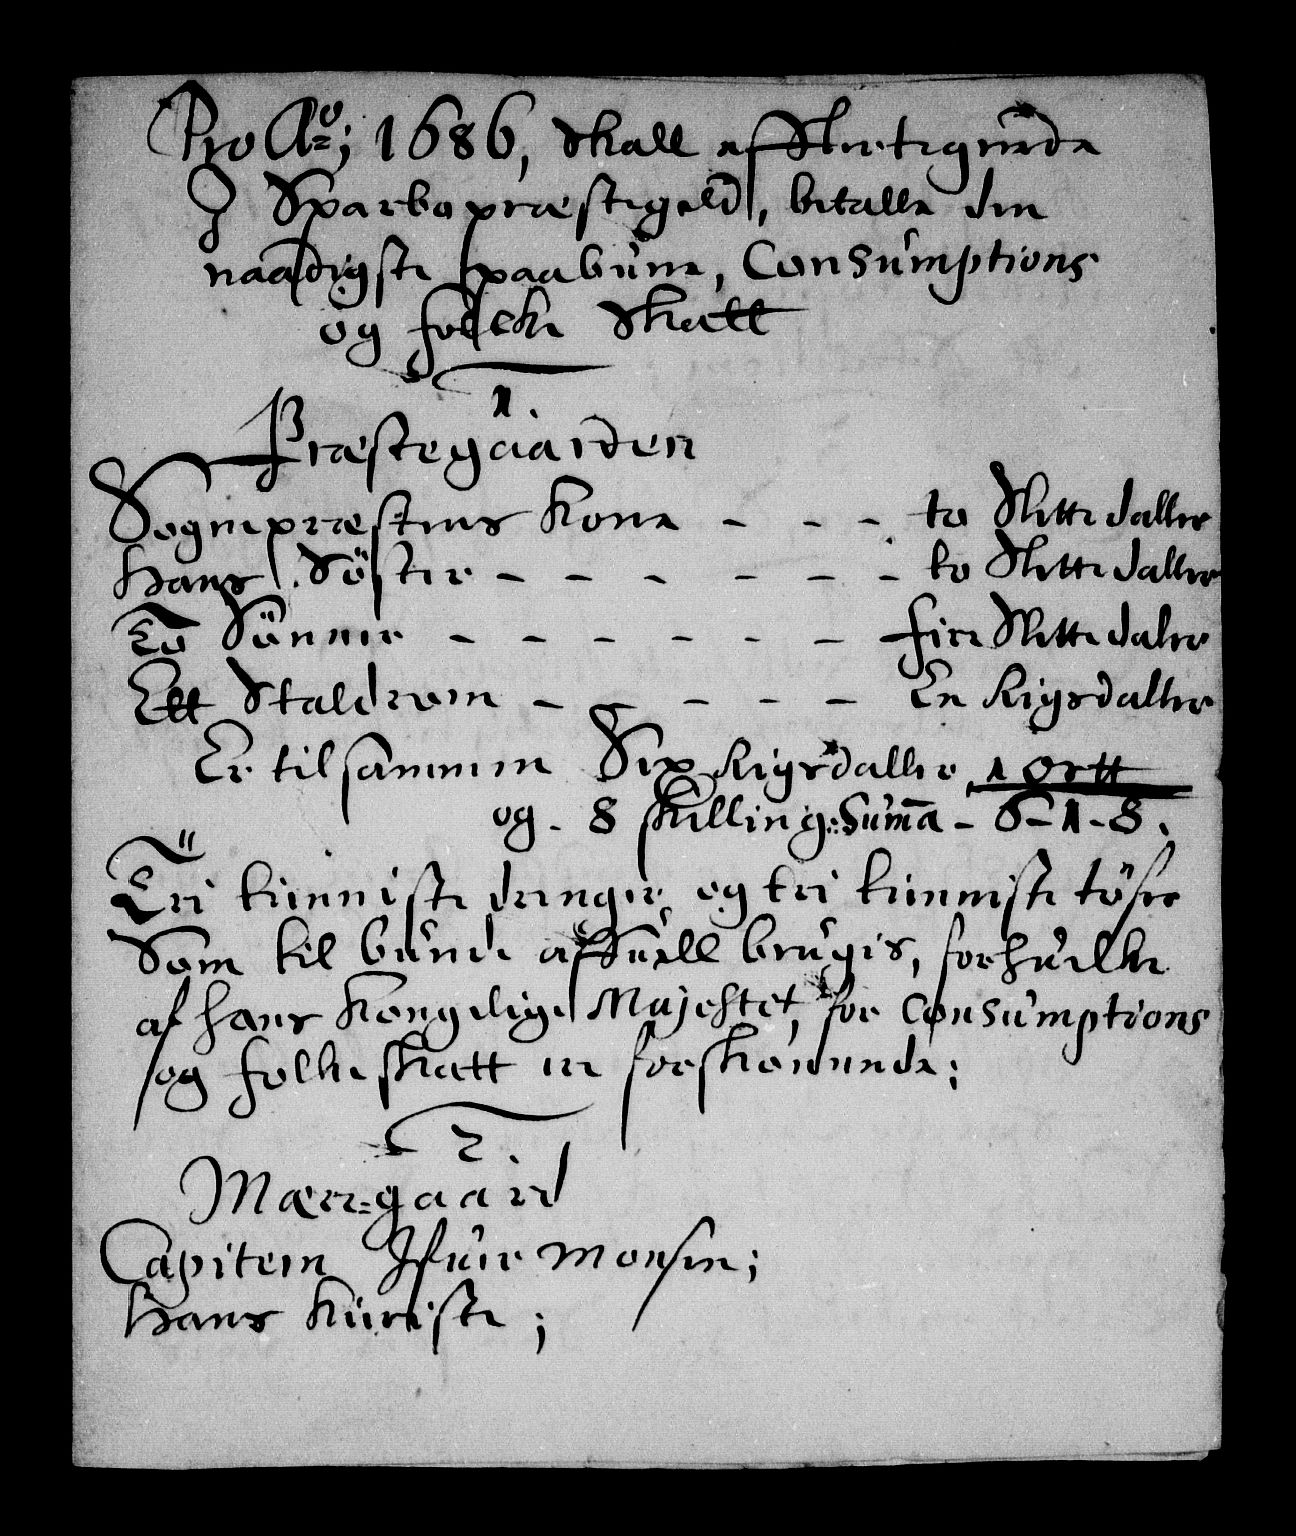 Pro Ao; 1686, skall aff Skretegnede
J Sparbo præstegeld, betalle den
naadigste paabudne, Consumptions
og follke Skatt
1.
Præstegaarden
Sogneprestens Kone - - - to Slette daller
hans Söster - - - - - - to Slette daller
To Sönner - - - - - - fire Slette daler
Ett Staldrom - - - - - En Rigsdaller
Er tilsammen Sex Rigsdaller 1 Ortt
og - 8 skilling: Summa - 6 - 1 - 8.
Tri tienniste drenger, og tri tienniste töser
Som til bunde affuell brugis, forhuilke
af hans Kongelige Majestet, for Consumptions
og folkeskatt er forskonnende;
2.
Mære=gaard
Capitein Ifuer Monsen;
hans Kieriste;